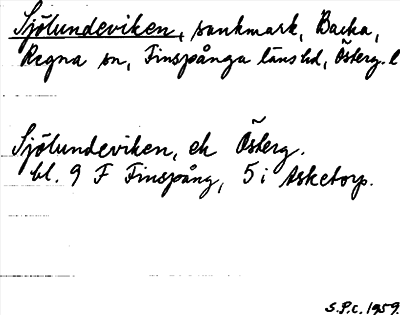 Sjölundeviken, sankmark, Backa,
Regna sn, Finspånga läns hd, Österg. l
Sjölundeviken, ek Österg.
bl. 9 F Finspång, 5 i Asketorp.
S.P.C. 1959.